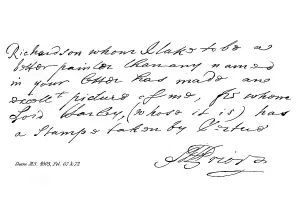 Richardson whom I take to be a
better painter than any named
in your letter has made an
excell.t picture of me, from whom
Lord Harley, (whose it is) has
a Stamp taken by Vertue
MPrior